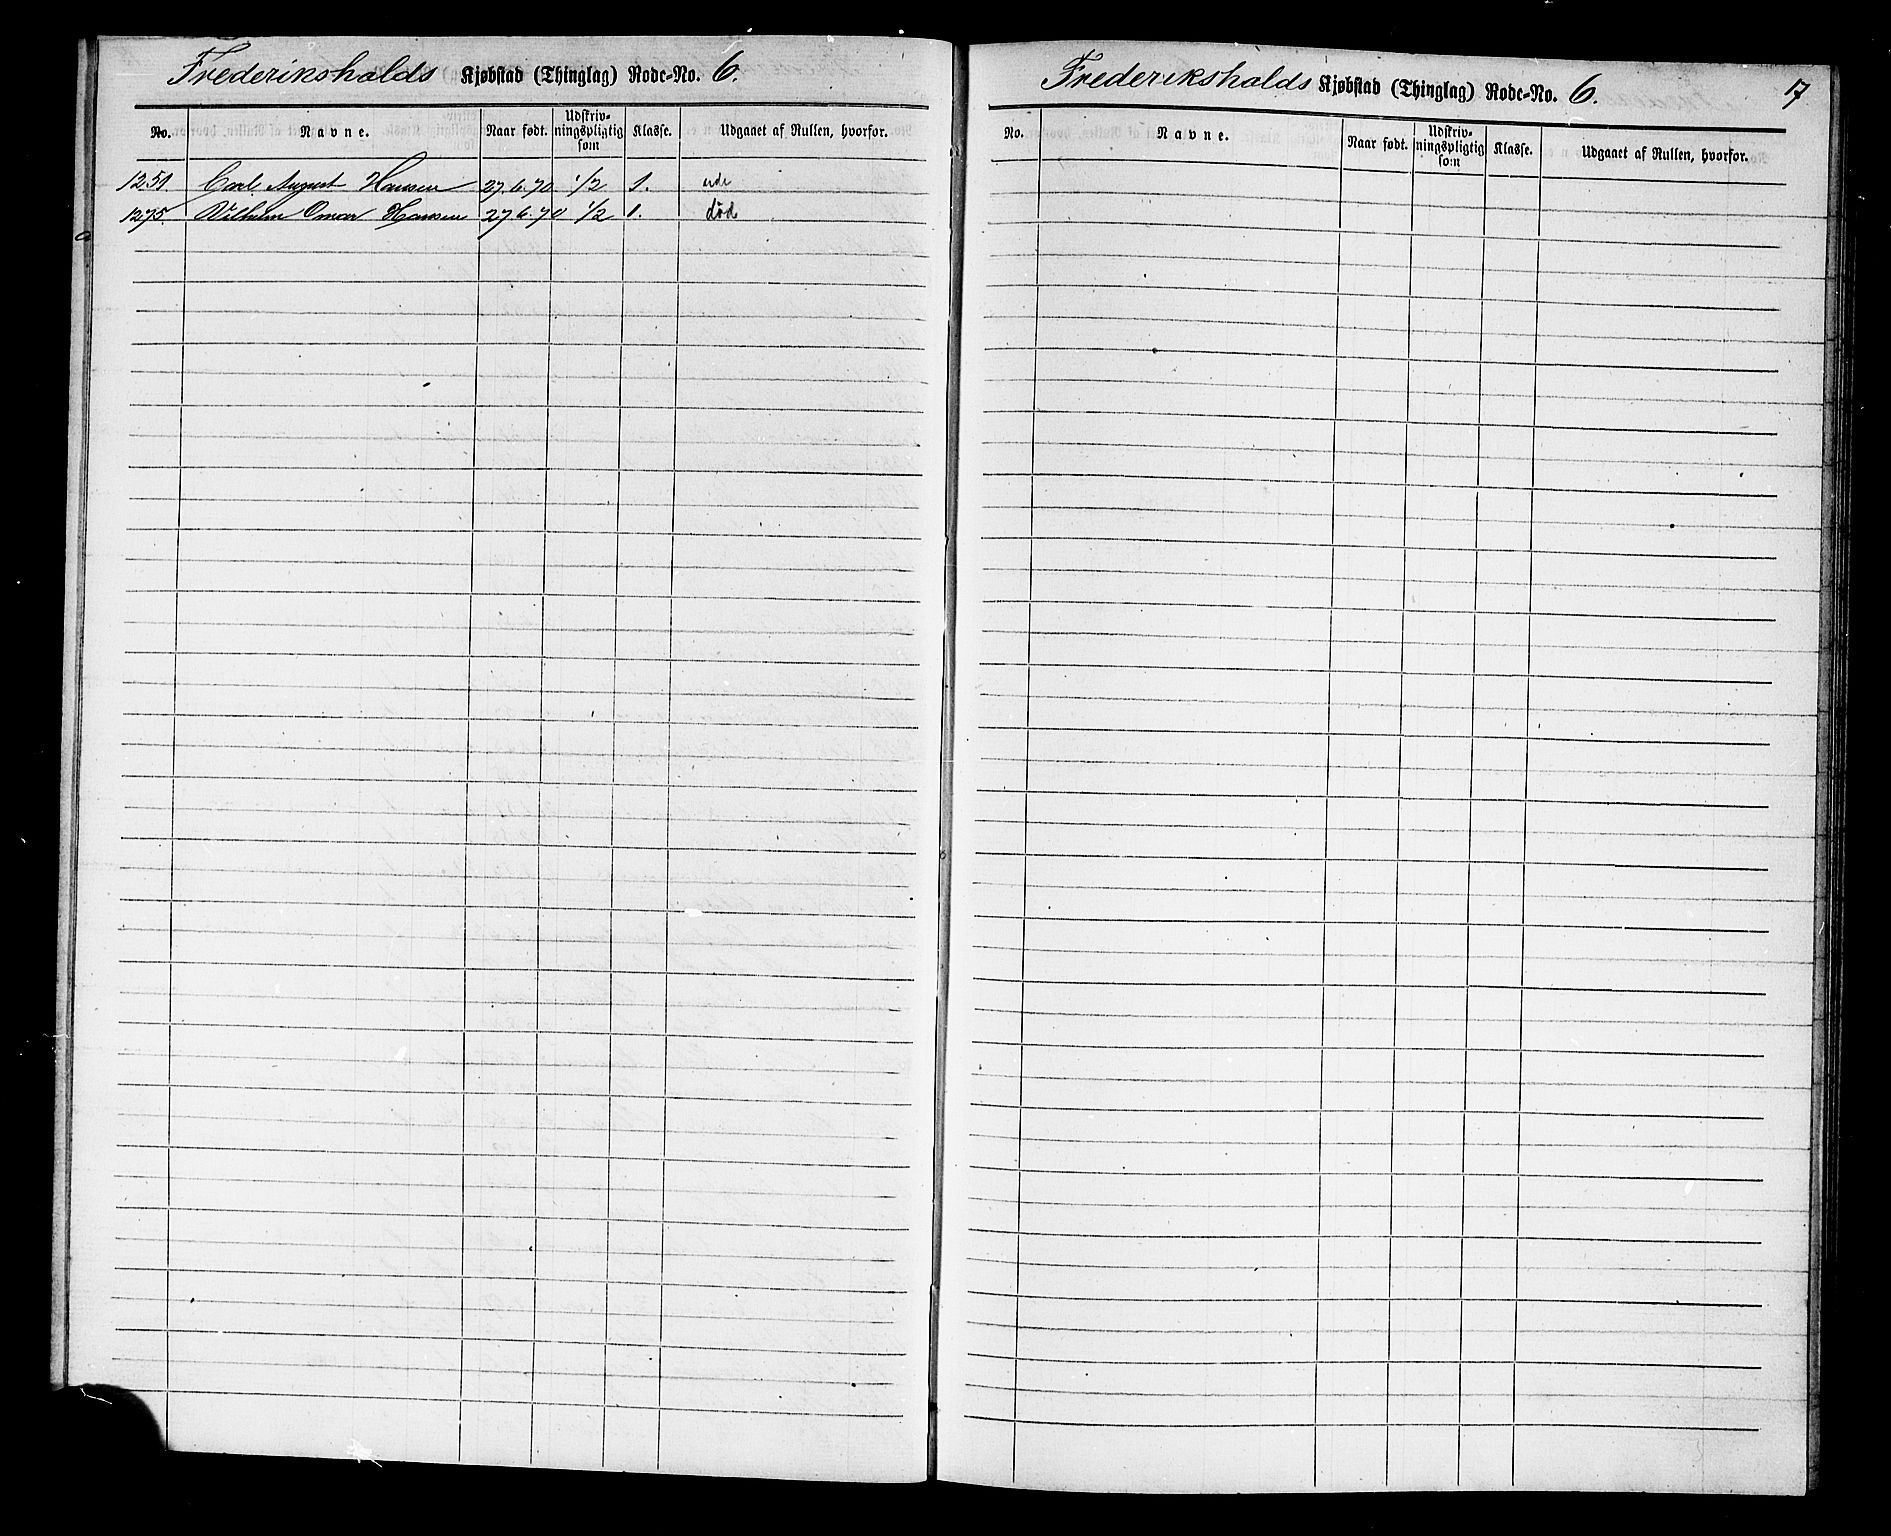 Frederiksholds Kjøbstad (Thinglag) Rode-No. 6.
No. Navne. Naar født. Udskriv-ningspligtig som Klasse. Udgaaet af Rullen, hvorfor.
1251. Carl August Hansen 27.6.70 1/2 1. ude
1275. Vilhelm Omar Hansen 27.6.70 1/2 1. død
Frederiksholds Kjøbstad (Thinglag) Rode-No. 6. 17
No. Navne. Naar født. Udskriv-ningspligtig som Klasse. Udgaaet af Rullen, hvorfor.